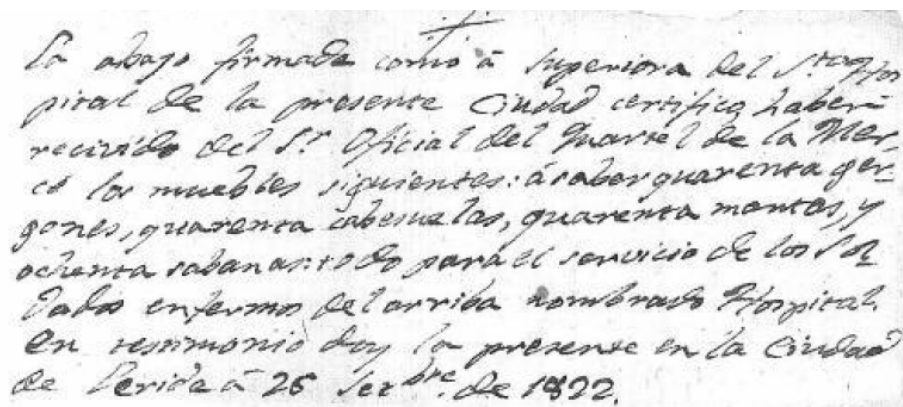 La abajo firmada como á Superiora del Sto. Hos
pital de la presente Ciudad certifico haber
recivido del Sr. Oficial del Quartel de la Mer-
cé los muebles siguientes: á saber quarenta ger-
gones, quarenta cabesuelas, quarenta mantas, y
ochenta sabanas: todo para el servicio de los Sol
dados enfermos del arriba nombrado Hospital.
En testimonio doy la presente en la Ciudad
de Lerida á 26 Setbre. de 1822.